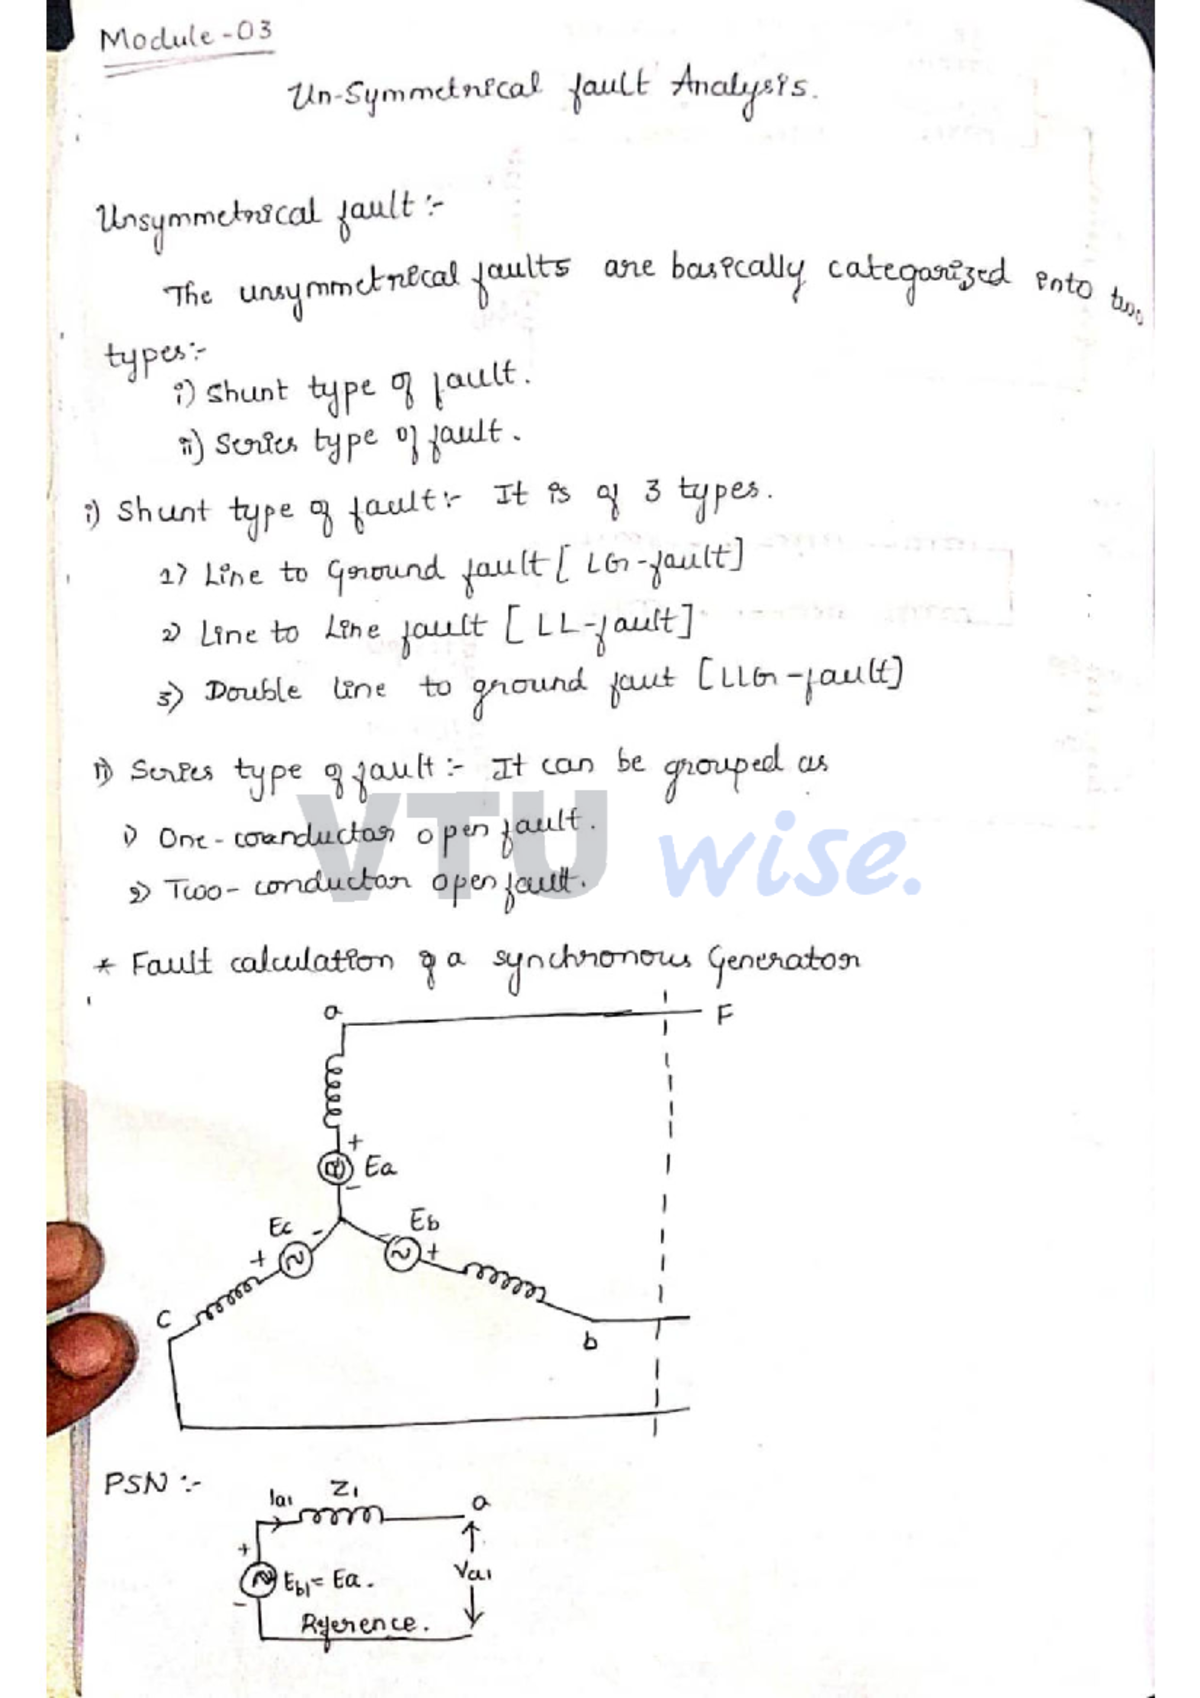 Module-03
Un-Symmetrical fault Analysis.
Unsymmetrical fault :-
The unsymmetrical faults are basically categorized into two
types:-
i) Shunt type of fault.
ii) Series type of fault.
i) Shunt type of fault:- It is of 3 types.
1) Line to Ground fault [LG-fault]
2) Line to Line fault [LL-fault]
3) Double line to ground faut [LLG-fault]
ii) Series type of fault :- It can be grouped as
1) One-conductor open fault.
2) Two-conductor open fault.
VTU wise.
* Fault calculation of a synchronous Generator
a
F
+
Ea
-
Ec
-
Eb
-
+
+
C
b
PSN :-
Ia1
Z1
a
+
Eb1 = Ea.
Va1
-
Reference.